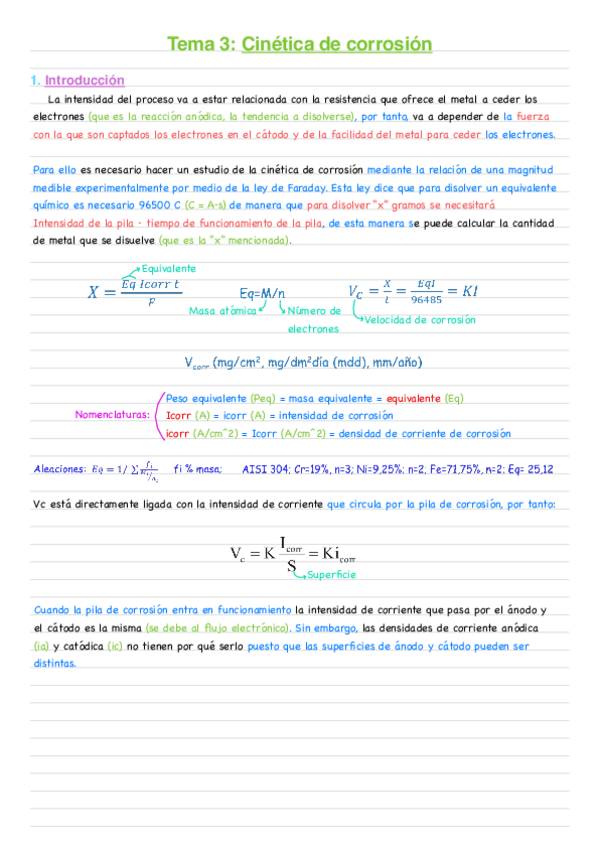 Tema 3: Cinética de corrosión
1. Introducción
La intensidad del proceso va a estar relacionada con la resistencia que ofrece el metal a ceder los
electrones (que es la reacción anódica, la tendencia a disolverse), por tanto, va a depender de la fuerza
con la que son captados los electrones en el cátodo y de la facilidad del metal para ceder los electrones.
Para ello es necesario hacer un estudio de la cinética de corrosión mediante la relación de una magnitud
medible experimentalmente por medio de la ley de Faraday. Esta ley dice que para disolver un equivalente
químico es necesario 96500 C (C = A·s) de manera que para disolver "x" gramos se necesitará
Intensidad de la pila · tiempo de funcionamiento de la pila, de esta manera se puede calcular la cantidad
de metal que se disuelve (que es la "x" mencionada).
Equivalente
X = Eq Icorr t / p Eq=M/n V_C = X/t = EqI/96485 = KI
Masa atómica Número de electrones Velocidad de corrosión
Vcorr (mg/cm², mg/dm²día (mdd), mm/año)
Peso equivalente (Peq) = masa equivalente = equivalente (Eq)
Nomenclaturas: Icorr (A) = icorr (A) = intensidad de corrosión
icorr (A/cm^2) = Icorr (A/cm^2) = densidad de corriente de corrosión
Aleaciones: Eq = 1/ ∑ fi % masa; AISI 304; Cr=19%, n=3; Ni=9,25%; n=2, Fe=71,75%, n=2; Eq= 25,12
Vc está directamente ligada con la intensidad de corriente que circula por la pila de corrosión, por tanto:
Vc = K Icorr/S = Ki corr
Superficie
Cuando la pila de corrosión entra en funcionamiento la intensidad de corriente que pasa por el ánodo y
el cátodo es la misma (se debe al flujo electrónico). Sin embargo, las densidades de corriente anódica
(ia) y catódica (ic) no tienen por qué serlo puesto que las superficies de ánodo y cátodo pueden ser
distintas.